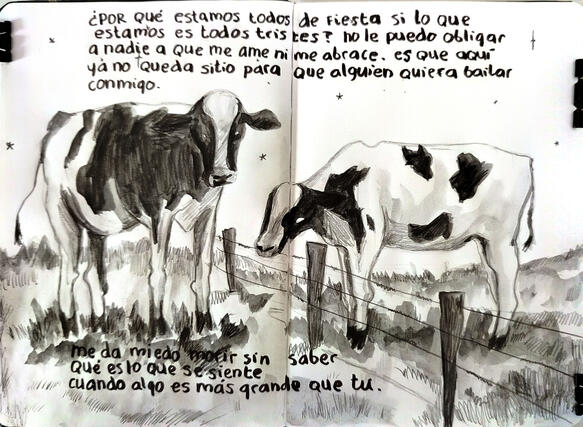 ¿POR qué estamos todos de fiesta si lo que
estamos es todos tristes? no le puedo obligar
a nadie a que me ame ni me abrace. es que aquí
ya no queda sitio para que alguien quiera bailar
conmigo.
me da miedo morir sin saber
Qué es lo que se siente
cuando algo es más grande que tu.